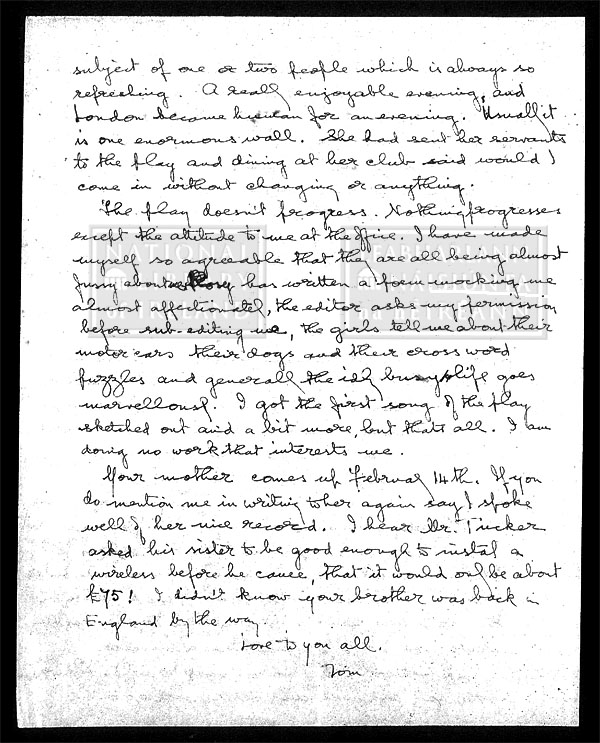 subject of one or two people which is always so
refreshing. A really enjoyable evening, and
London became human for an evening. Usually it
is one enormous wall. She had sent her servants
to the play and dining at her club said would I
come in without changing or anything.
The play doesn't progress. Nothing progresses
except the attitude to me at the office. I have made
myself so agreeable that they are all being almost
fussy about me. has written a poem mocking me
almost affectionately, the editor asks my permission
before sub-editing me, the girls tell me about their
motor cars their dogs and their cross word
puzzles and generally the idly busy life goes
marvellously. I got the first song of the play
sketched out and a bit more, but thats all. I am
doing no work that interests me.
Your mother comes up February 14th. If you
do mention me in writing to her again say I spoke
well of her nice record. I hear Mr. Tucker
asked his sister to be good enough to instal a
wireless before he came, that it would only be about
£75! I didn't know your brother was back in
England by the way
Love to you all.
Tom
NATIONAL
LIBRARY
OF IRELAND
LEABHARLANN
NÁISIÚNTA
NA HÉIREANN